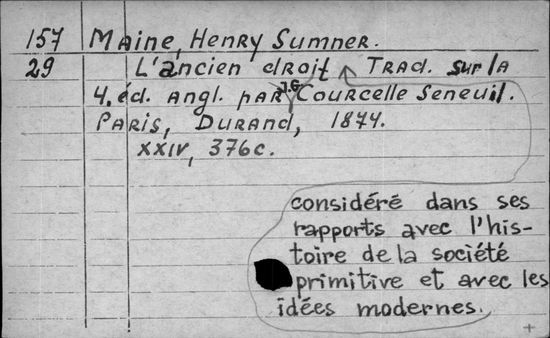 157 Maine, Henry Sumner.
29 L'ancien droit Trad. sur la
4. éd. angl. par J.G. Courcelle Seneuil.
Paris, Durand, 1874.
XXIV, 376 c.
considéré dans ses
rapports avec l'his-
toire de la société
primitive et avec les
idées modernes.
+